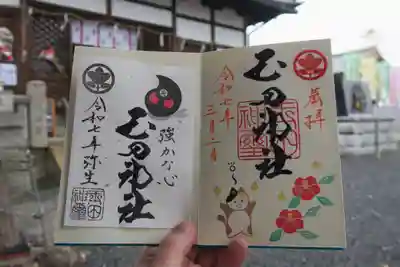 奉拝
玉田神社
令和七年
三月二日
強かな心
玉田神社
令和七年弥生